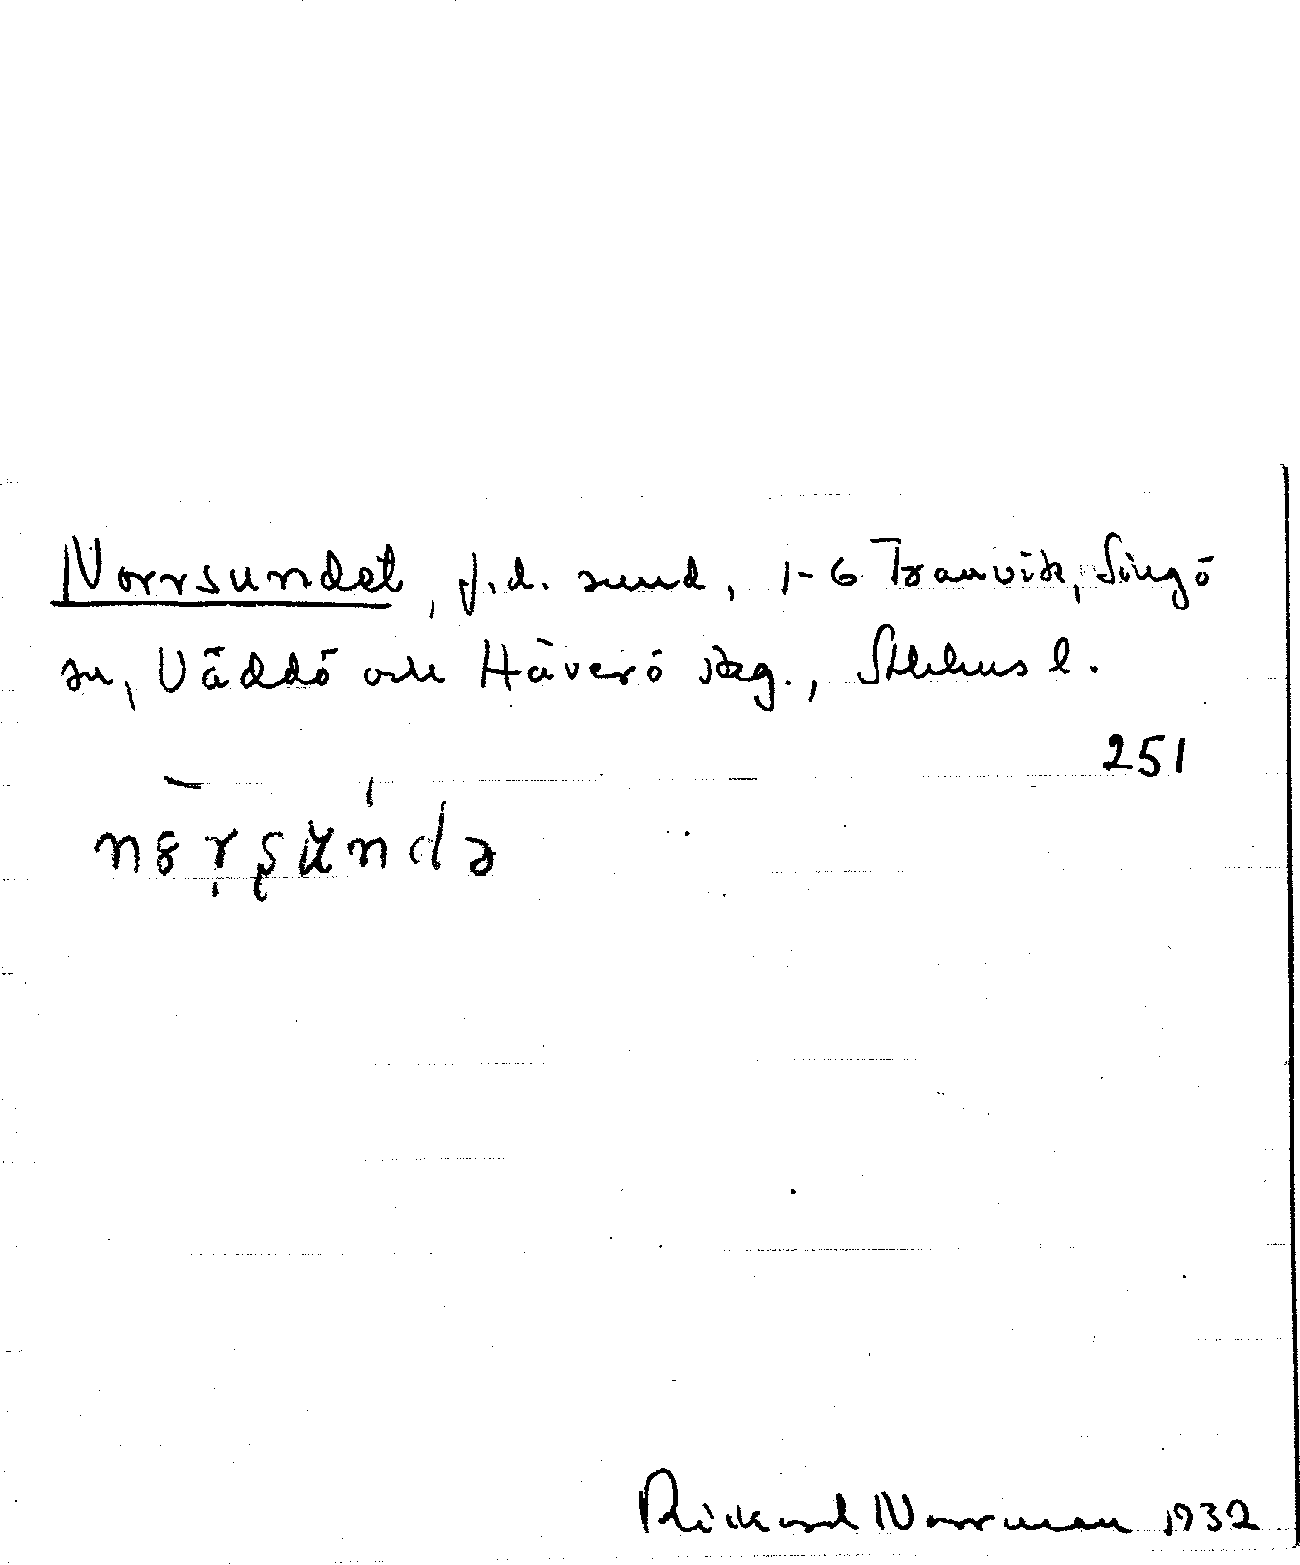 Norrsundet, f.d. sund, 1-6 Tranvik, Singö
sn, Väddö och Häverö skg., Sthlms l.
251
nɞrʂundə
Rickard Norrman 1932